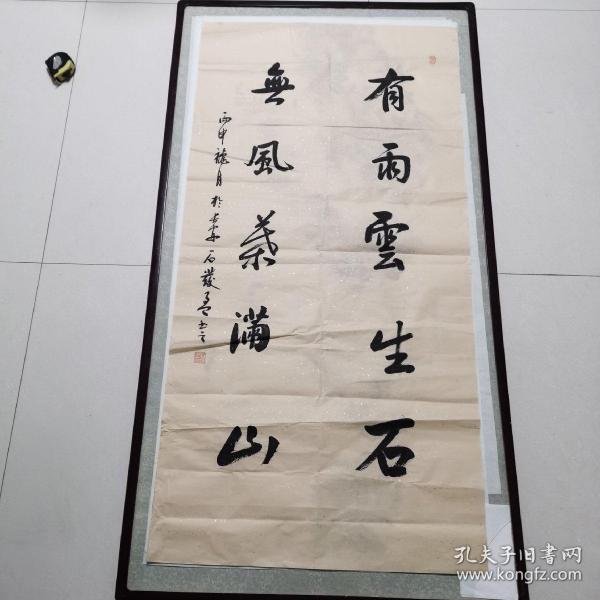 有雨雲生石
無風葉滿山
丙申穗月於長安石巖書
孔夫子旧書网
www.kongfz.com